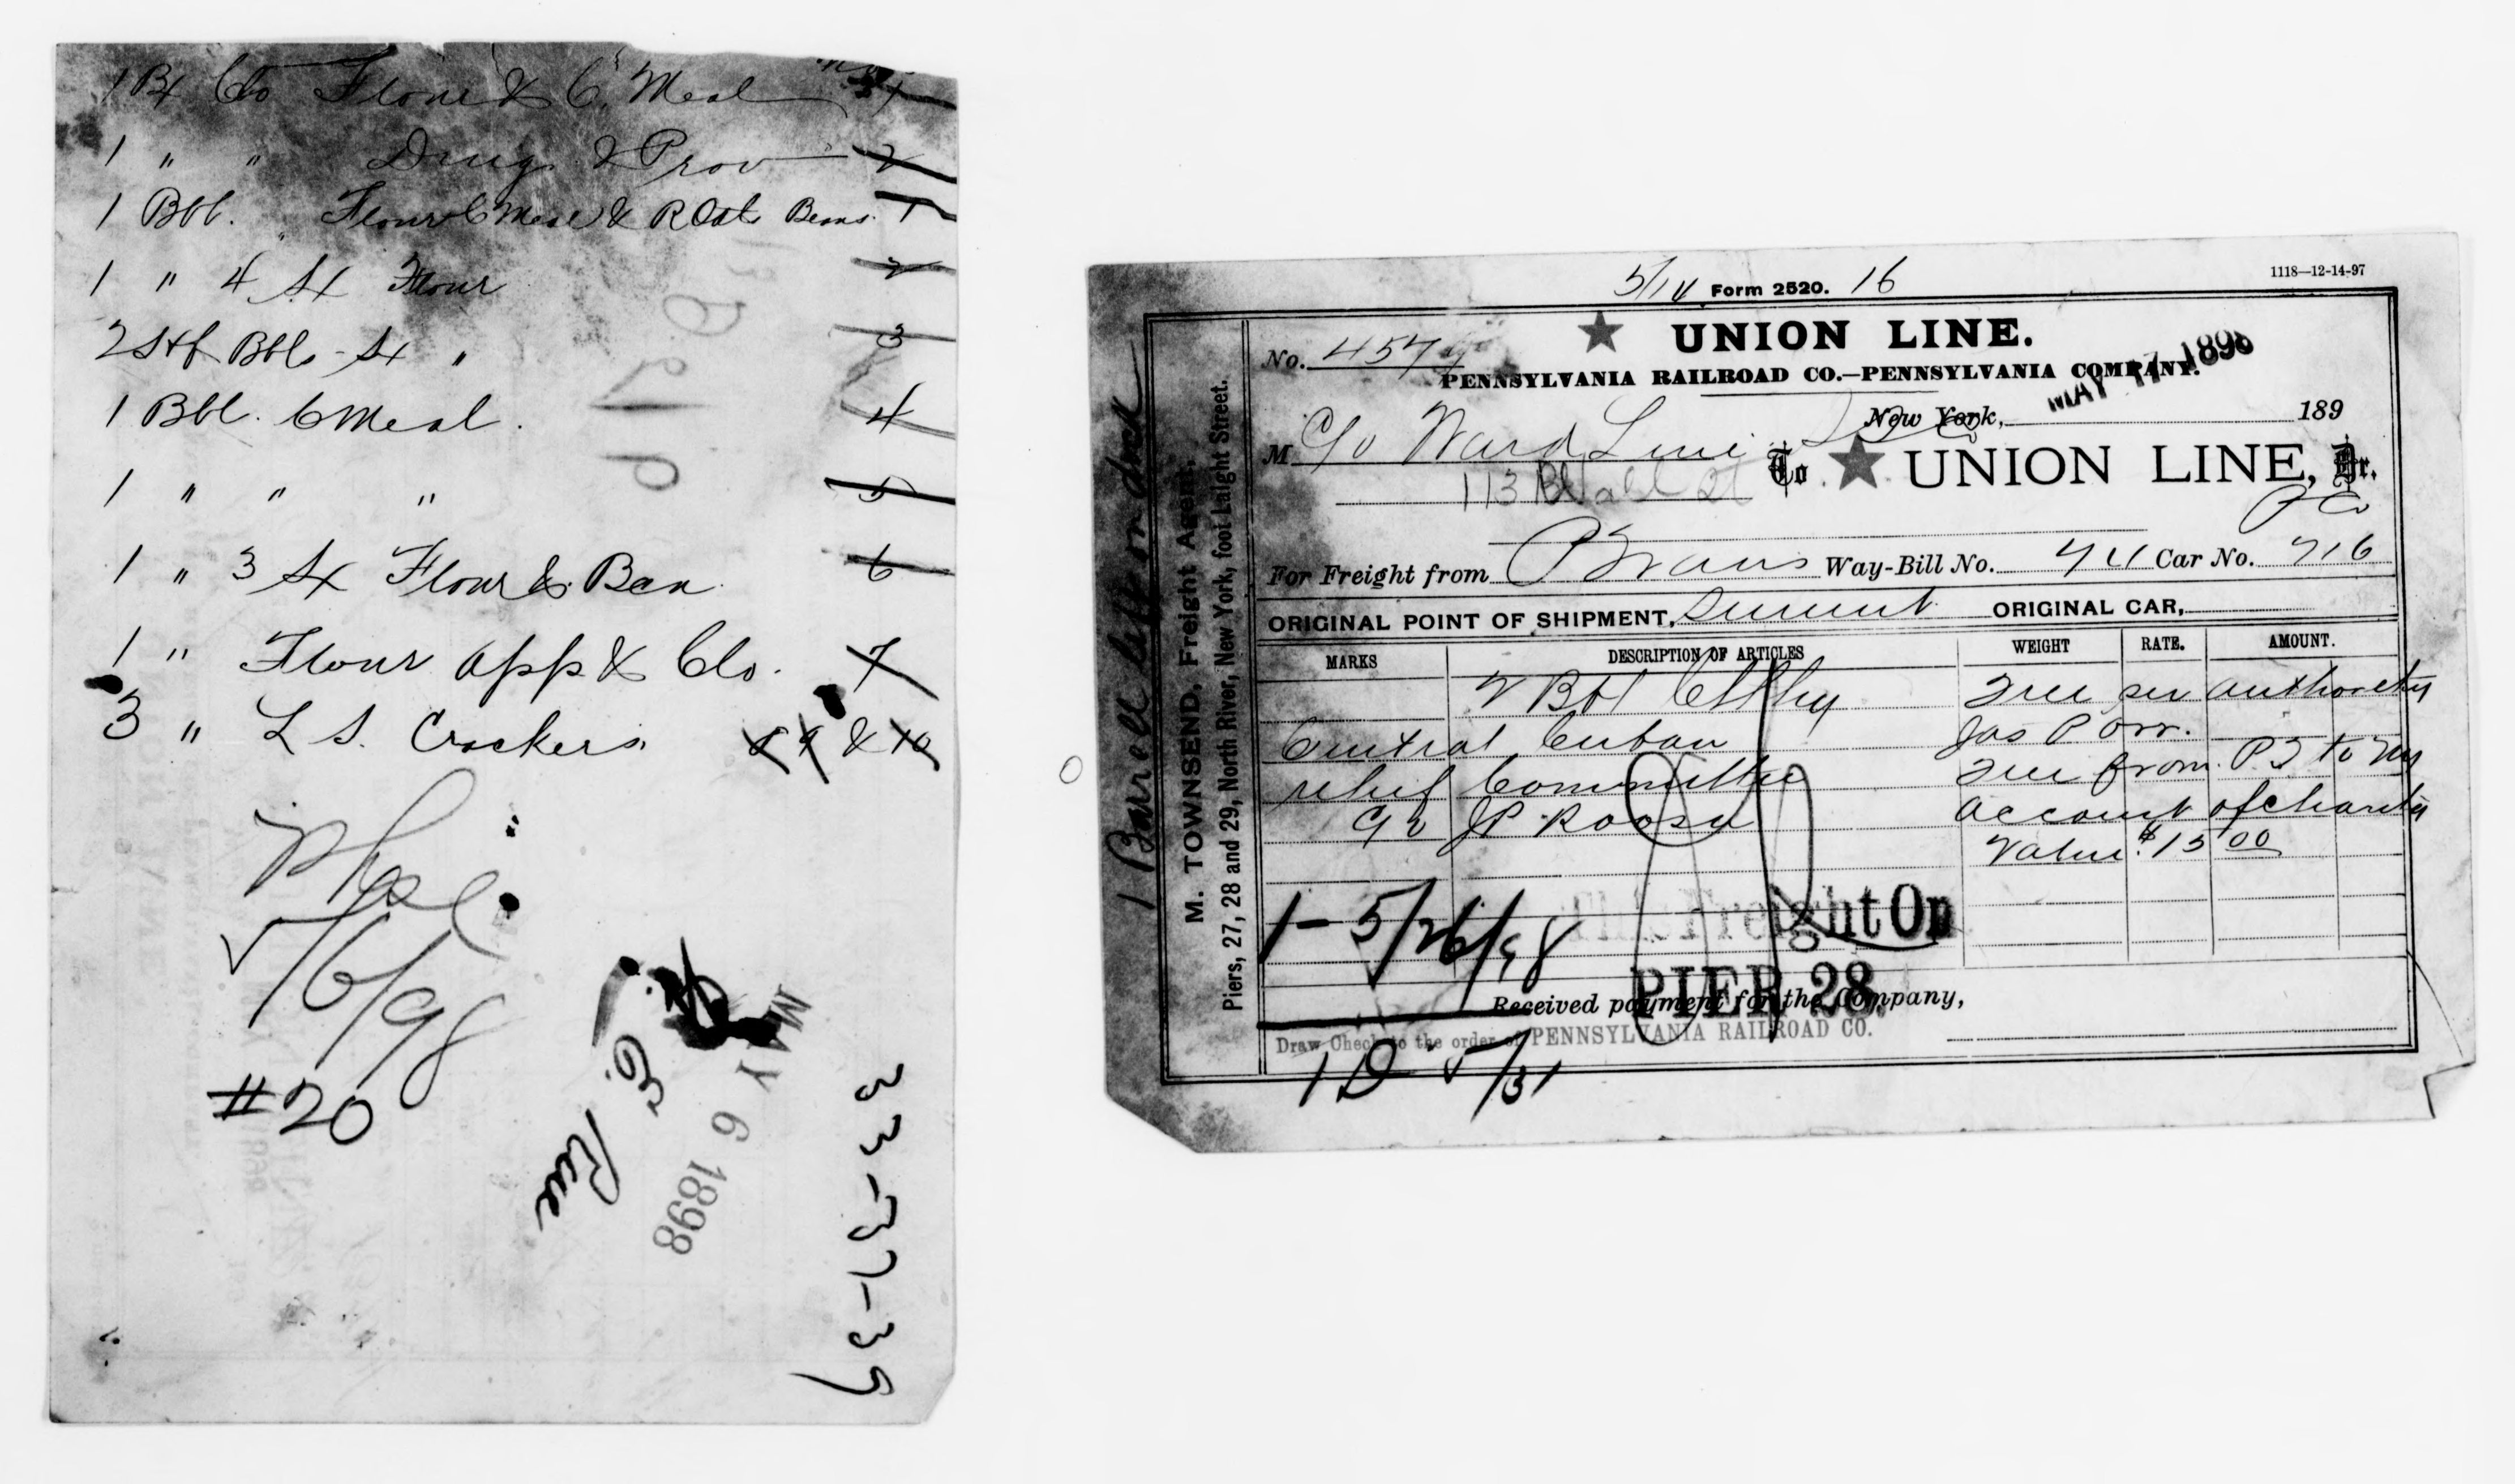 1 Bx Clo Flour & C. Meal 1
1 " " Drug & Prov 2
1 Bbl. Flour C Meal & R Oats Beans 1
1 " 4 Sx Flour 2
2 Bbls Sx " 3
1 Bbl. C Meal. 4
1 " " " 5
1 " 3 Sx Flour & Bea 6
1 " Flour app & Clo. 7
3 " L S. Crackers 8 9 & 10
5/6/98
#20
MAY 6 1898
33-37-39
5/14 Form 2520. 16
1118—12-14-97
UNION LINE.
No. 4577
PENNSYLVANIA RAILROAD CO.—PENNSYLVANIA COMPANY.
MAY 17 1898
New York, 189
M C/o Ward Line
To UNION LINE, Dr.
113 Wall St
P Co
For Freight from Way-Bill No. 74 Car No. 716
ORIGINAL POINT OF SHIPMENT, Summit ORIGINAL CAR,
MARKS DESCRIPTION OF ARTICLES WEIGHT RATE. AMOUNT.
2 Bbl Free per authority
Central Cuban Jas P Orr.
relief Committee Free from to NY
c/o JP Roosa account of charity
Value $15 00
1-5/26/98
This Freight On
PIER 28.
Received payment for the Company,
Draw Check to the order of PENNSYLVANIA RAILROAD CO.
1 D 5/31
M. TOWNSEND, Freight Agent,
Piers, 27, 28 and 29, North River, New York, foot Laight Street.
1 Barrell left on dock